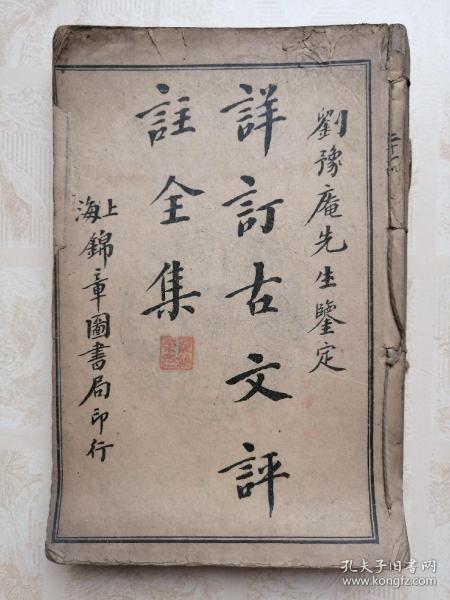 劉豫庵先生鑒定
詳訂古文評
註全集
上海
錦章圖書局印行
孔夫子旧书网
www.kongfz.com